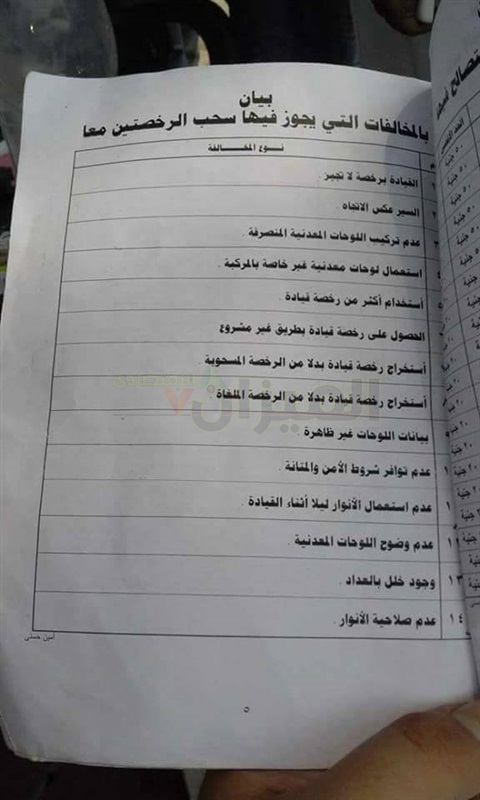 بيان
بالمخالفات التي يجوز فيها سحب الرخصتين معا
نوع المخالفة
القيادة برخصة لا تجيز .
السير عكس الاتجاه .
عدم تركيب اللوحات المعدنية المنصرفة .
استعمال لوحات معدنية غير خاصة بالمركبة .
أستخدام أكثر من رخصة قيادة .
الحصول على رخصة قيادة بطريق غير مشروع
أستخراج رخصة قيادة بدلا من الرخصة المسحوبة
أستخراج رخصة قيادة بدلا من الرخصة الملغاة
بيانات اللوحات غير ظاهرة .
عدم توافر شروط الأمن والمتانة .
عدم استعمال الأنوار ليلا أثناء القيادة .
عدم وضوح اللوحات المعدنية .
١٣ وجود خلل بالعداد .
١٤ عدم صلاحية الأنوار .
أمين حسنى
٥
الميزان